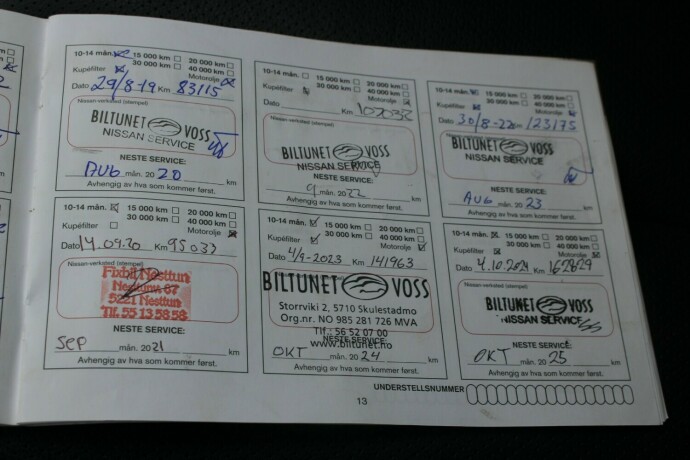 10-14 mån. 15 000 km 20 000 km
30 000 km 40 000 km
Kupéfilter Motorolje
Dato 29/8-19 Km 83115
Nissan-verksted (stempel)
BILTUNET VOSS
NISSAN SERVICE
NESTE SERVICE:
AUG mån. 20 20 km
Avhengig av hva som kommer først.
10-14 mån. 15 000 km 20 000 km
30 000 km 40 000 km
Kupéfilter Motorolje
Dato Km 102032
Nissan-verksted (stempel)
BILTUNET VOSS
NISSAN SERVICE
NESTE SERVICE:
9 mån. 20 22 km
Avhengig av hva som kommer først.
10-14 mån. 15 000 km 20 000 km
30 000 km 40 000 km
Kupéfilter Motorolje
Dato 30/8-22 Km 123175
Nissan-verksted (stempel)
BILTUNET VOSS
NISSAN SERVICE
NESTE SERVICE:
AUG mån. 20 23 km
Avhengig av hva som kommer først.
10-14 mån. 15 000 km 20 000 km
30 000 km 40 000 km
Kupéfilter Motorolje
Dato 14.09.20 Km 95033
Nissan-verksted (stempel)
Fixbil Nesttun
67
5221 Nesttun
Tlf. 55 13 58 58
NESTE SERVICE:
SEP mån. 20 21 km
Avhengig av hva som kommer først.
10-14 mån. 15 000 km 20 000 km
30 000 km 40 000 km
Kupéfilter Motorolje
Dato 4/9-2023 Km 141963
BILTUNET VOSS
Storrviki 2, 5710 Skulestadmo
Org.nr. NO 985 281 726 MVA
Tlf.: 56 52 07 00
www.biltunet.no
NESTE SERVICE:
OKT mån. 20 24 km
Avhengig av hva som kommer først.
10-14 mån. 15 000 km 20 000 km
30 000 km 40 000 km
Kupéfilter Motorolje
Dato 4.10.2024 Km 162829
Nissan-verksted (stempel)
BILTUNET VOSS
NISSAN SERVICE
NESTE SERVICE:
OKT mån. 20 25 km
Avhengig av hva som kommer først.
UNDERSTELLSNUMMER
13